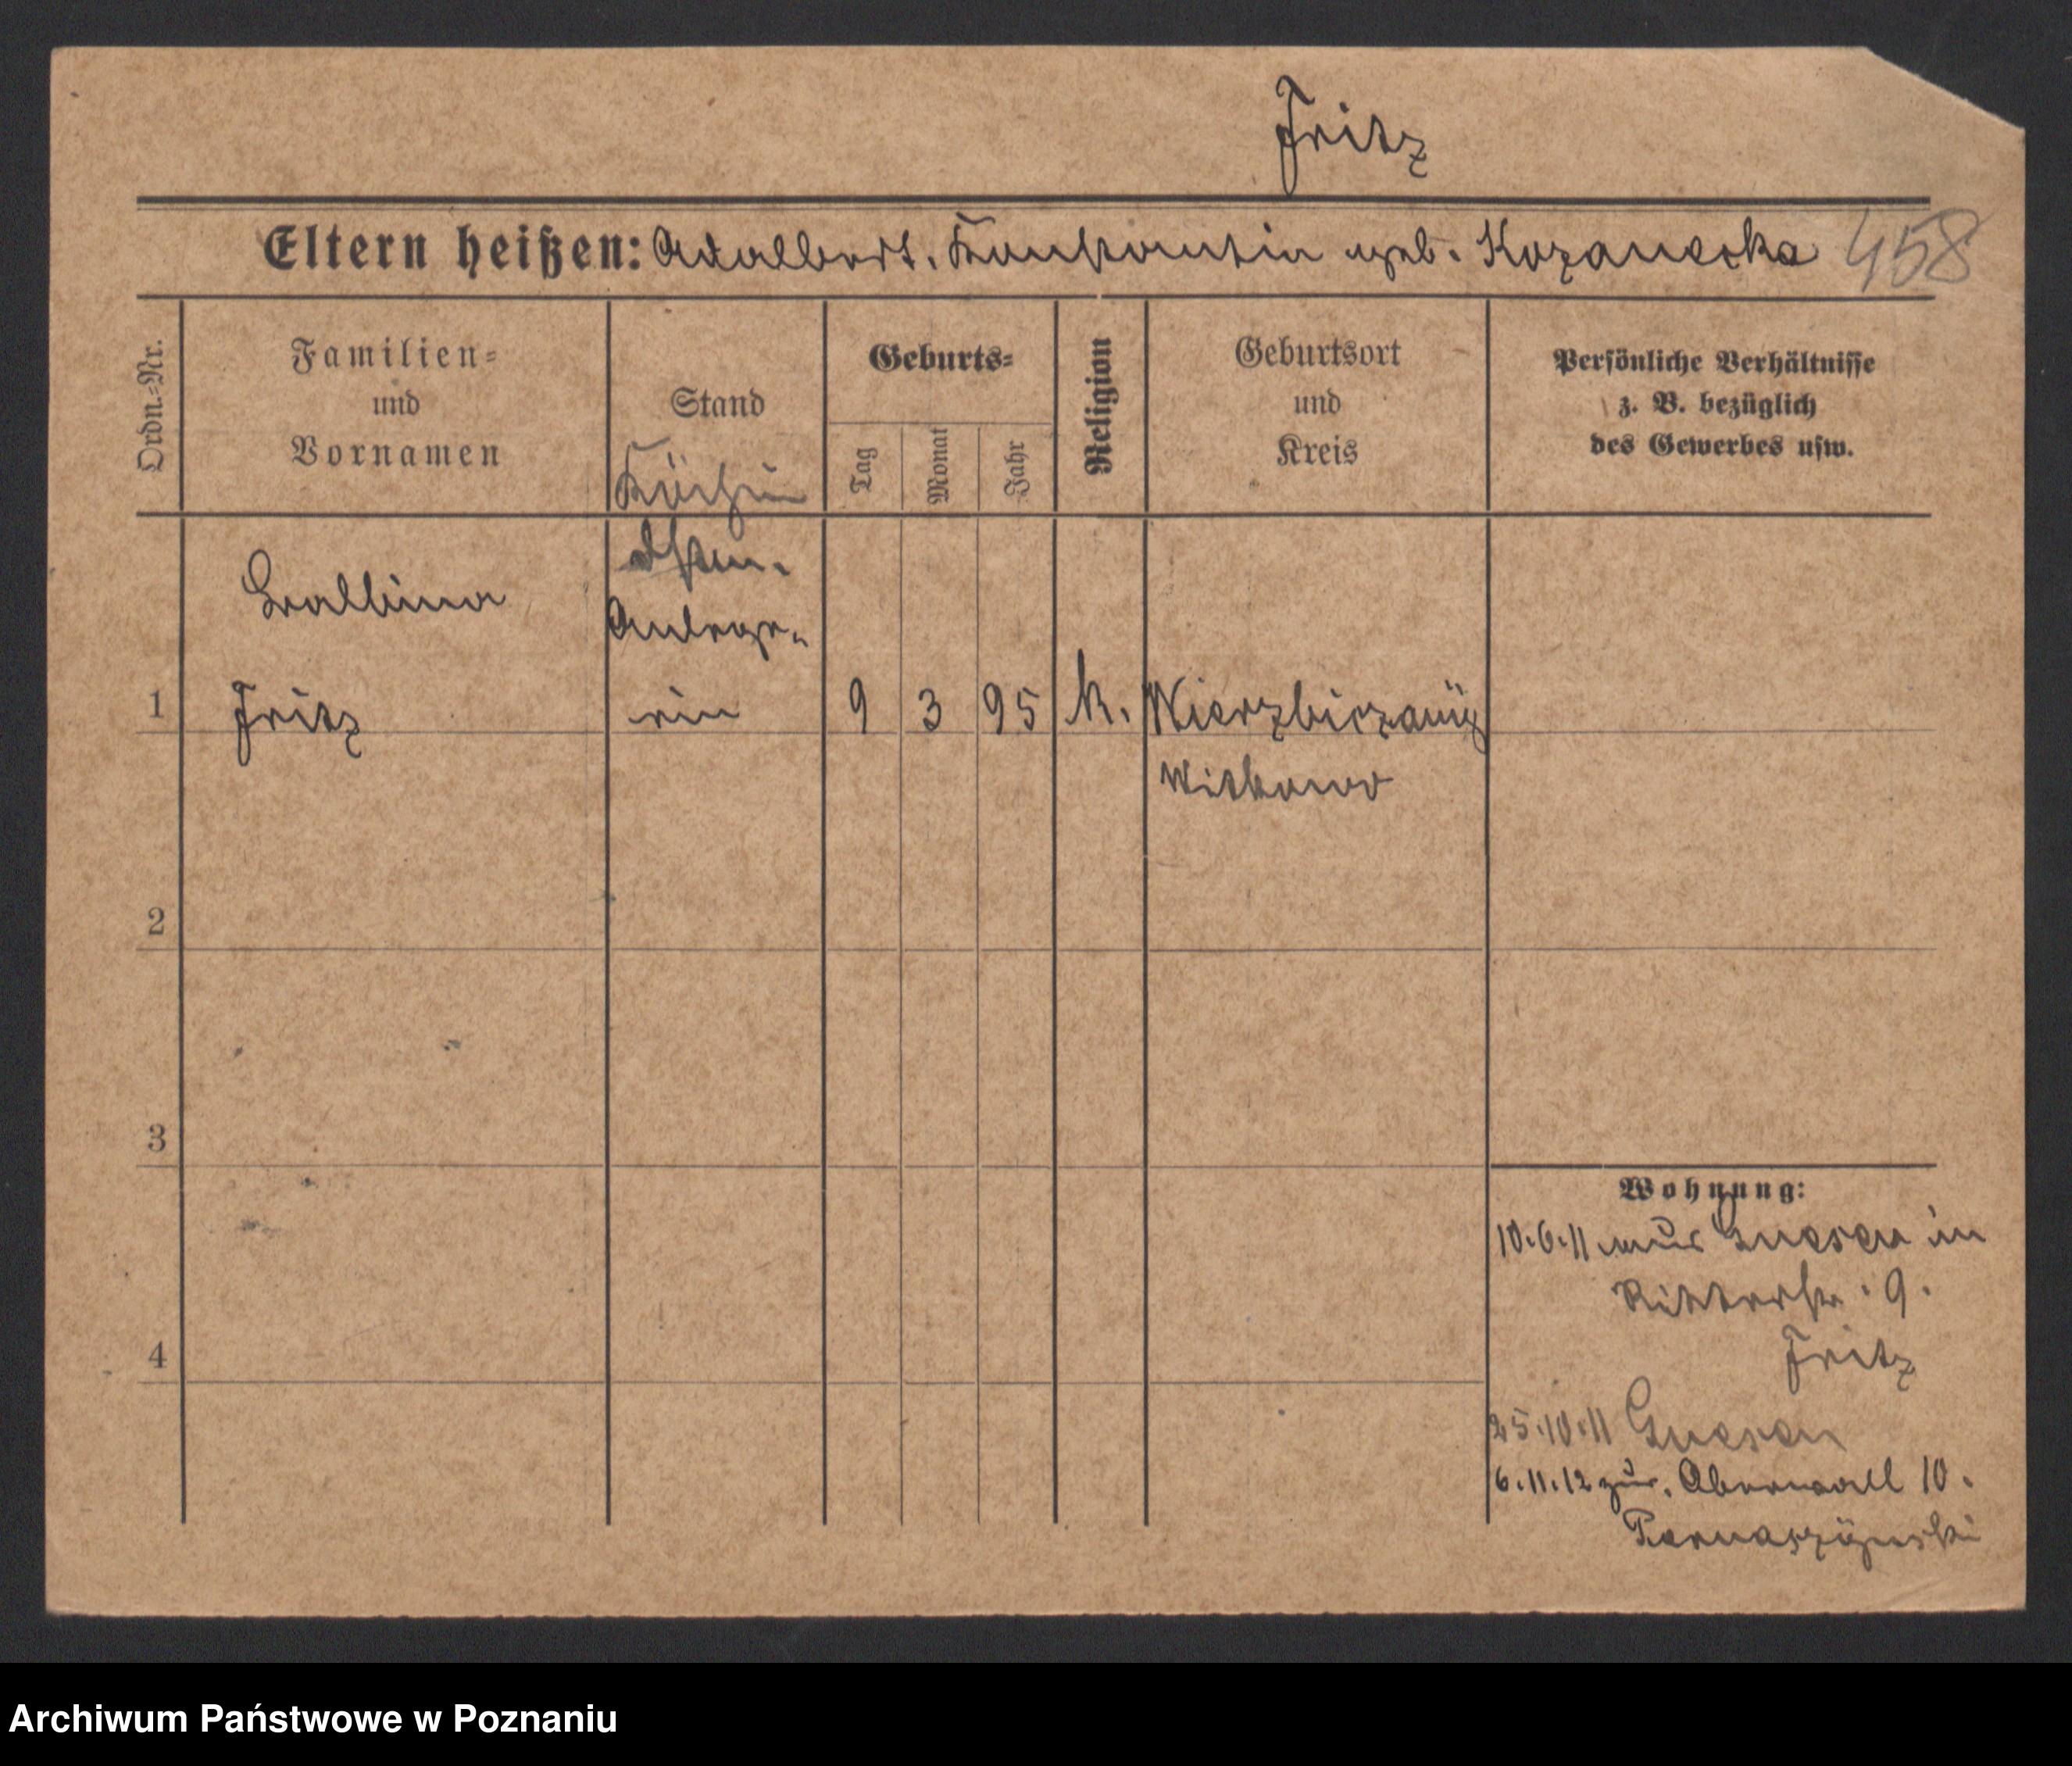 Fritz
Eltern heißen: Adalbert. Konstantin geb. Kozanecka 458
Ordn.-Nr.
Familien-
und
Vornamen
Stand
Geburts-
Tag
Monat
Jahr
Religion
Geburtsort
und
Kreis
Persönliche Verhältnisse
z. B. bezüglich
des Gewerbes usw.
Köchin
Balbina
Anlege-
1 Fritz rin 9 3 95 k. Wierzbiczany
Witkowo
2
3
4
Wohnung:
10.6.11 aus Gnesen in
Ritterstr. 9.
Fritz
25.10.11 Gnesen
6.11.12 zur. Oberwall 10.
Archiwum Państwowe w Poznaniu